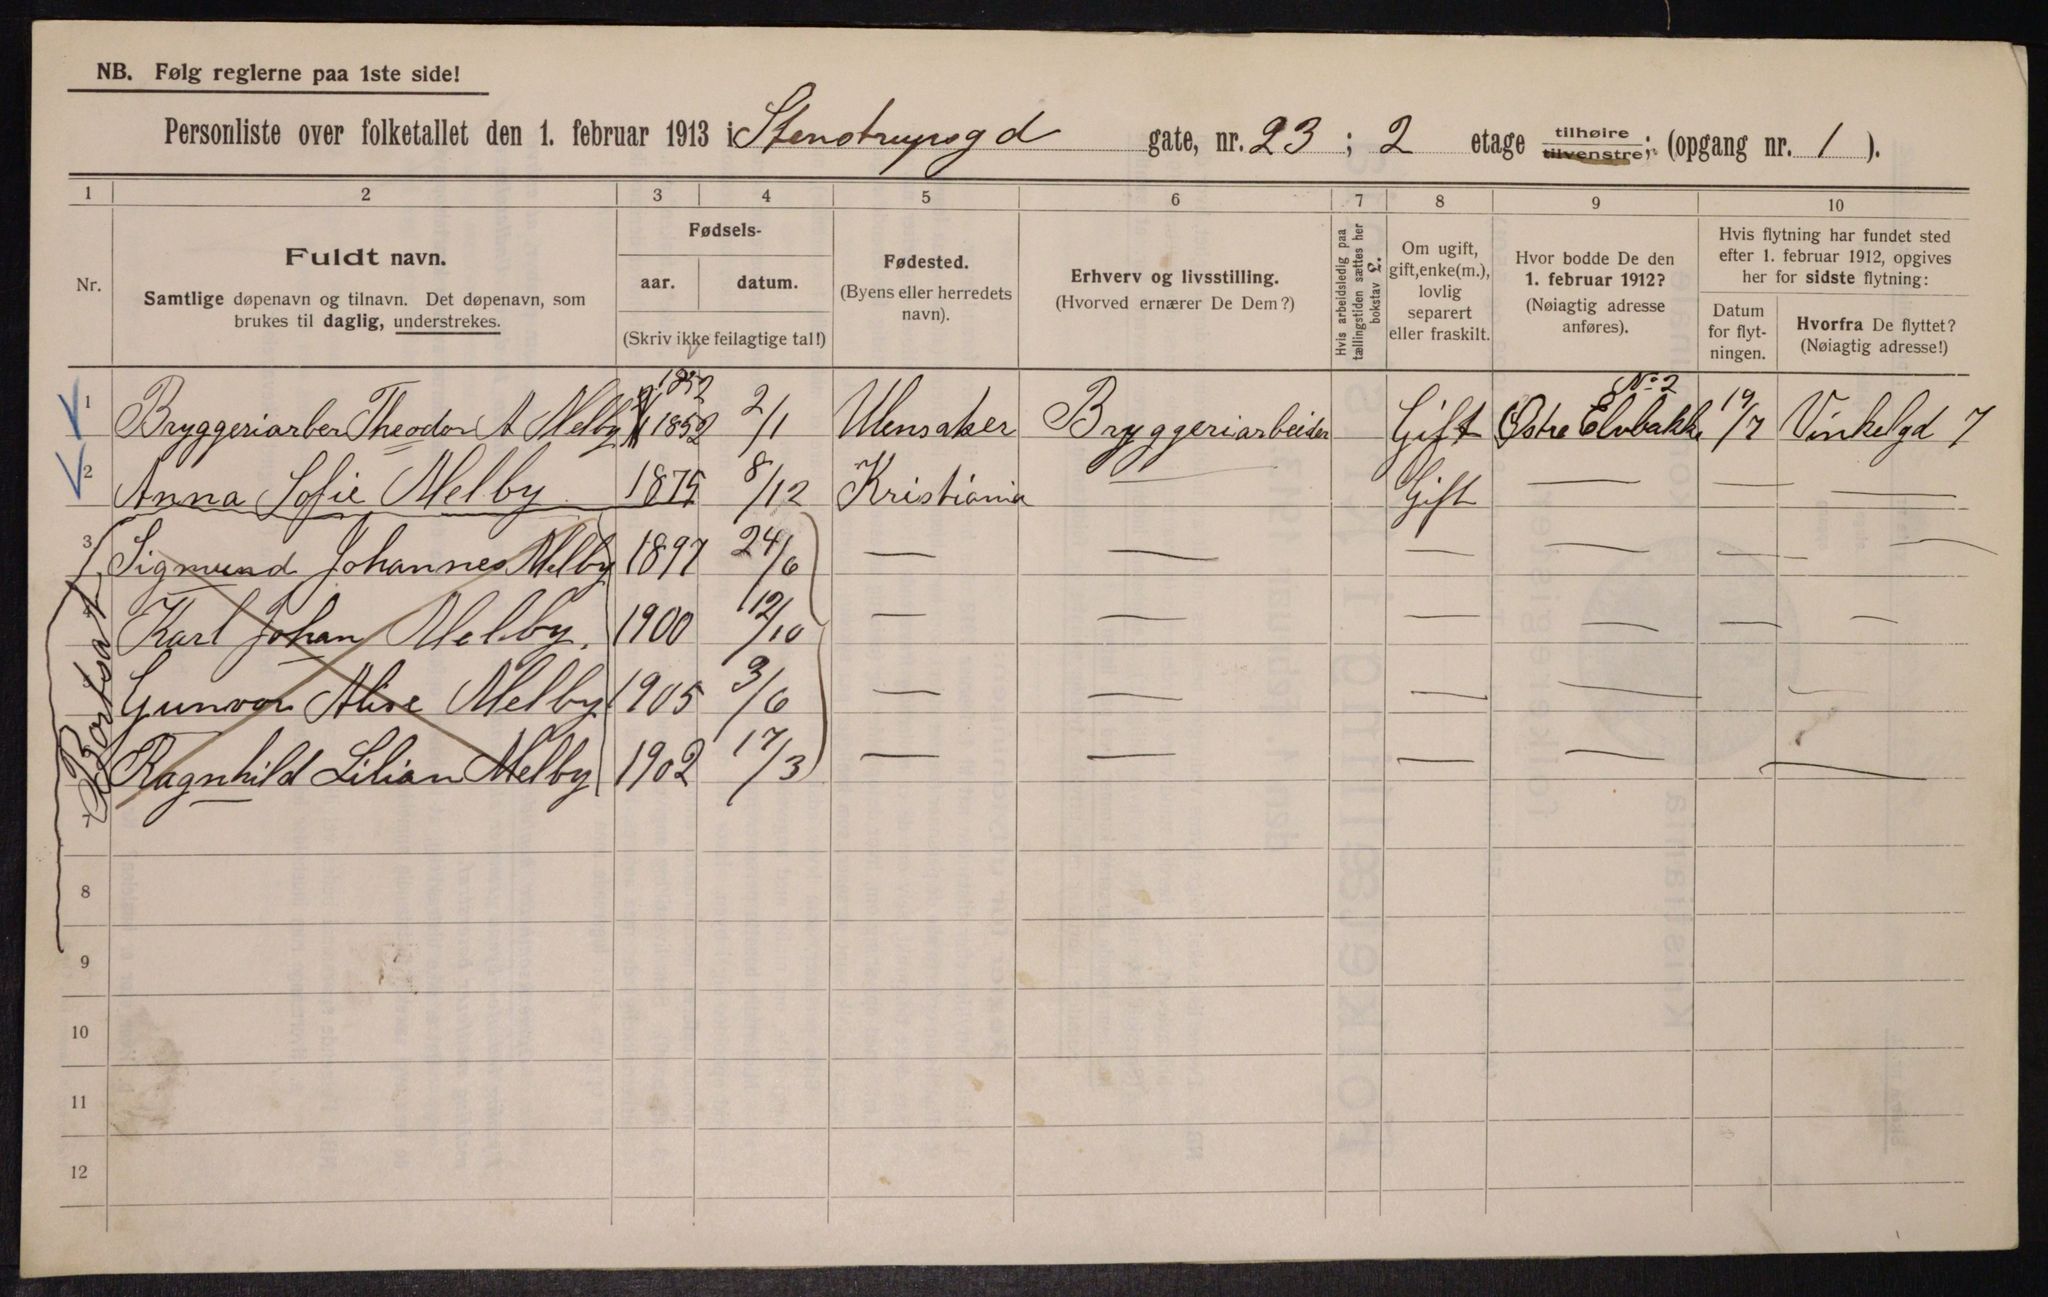 NB. Følg reglerne paa 1ste side!
Personliste over folketallet den 1. februar 1913 i Stenstrupsgd gate, nr. 23 ; 2 etage tilhøire tilvenstre; (opgang nr. 1 ).
1 2 3 4 5 6 7 8 9 10
Nr.
Fuldt navn.
Samtlige døpenavn og tilnavn. Det døpenavn, som
brukes til daglig, understrekes.
Fødsels-
aar. datum.
(Skriv ikke feilagtige tal!)
Fødested.
(Byens eller herredets
navn).
Erhverv og livsstilling.
(Hvorved ernærer De Dem?)
Hvis arbeidsledig paa
tællingstiden sættes her
bokstav l.
Om ugift,
gift, enke(m.),
lovlig
separert
eller fraskilt.
Hvor bodde De den
1. februar 1912?
(Nøiagtig adresse
anføres).
Hvis flytning har fundet sted
efter 1. februar 1912, opgives
her for sidste flytning:
Datum
for flyt-
ningen.
Hvorfra De flyttet?
(Nøiagtig adresse!)
1852 No 2
1 Bryggeriarber Theodor A Melby 1852 2/1 Ulensaker Bryggeriarbeider Gift Østre Elvbakke 19/7 Vinkelgd 7
2 Anna Sofie Melby 1875 8/12 Kristiania — Gift — — —
3 Sigmund Johannes Melby 1897 24/6 — — — — — —
Karl Johan Melby. 1900 12/10 — — — — — —
Gunvor Alise Melby 1905 3/6 — — — — —
Ragnhild Lilian Melby 1902 17/3 — — — — —
Bortsat
8
9
10
11
12